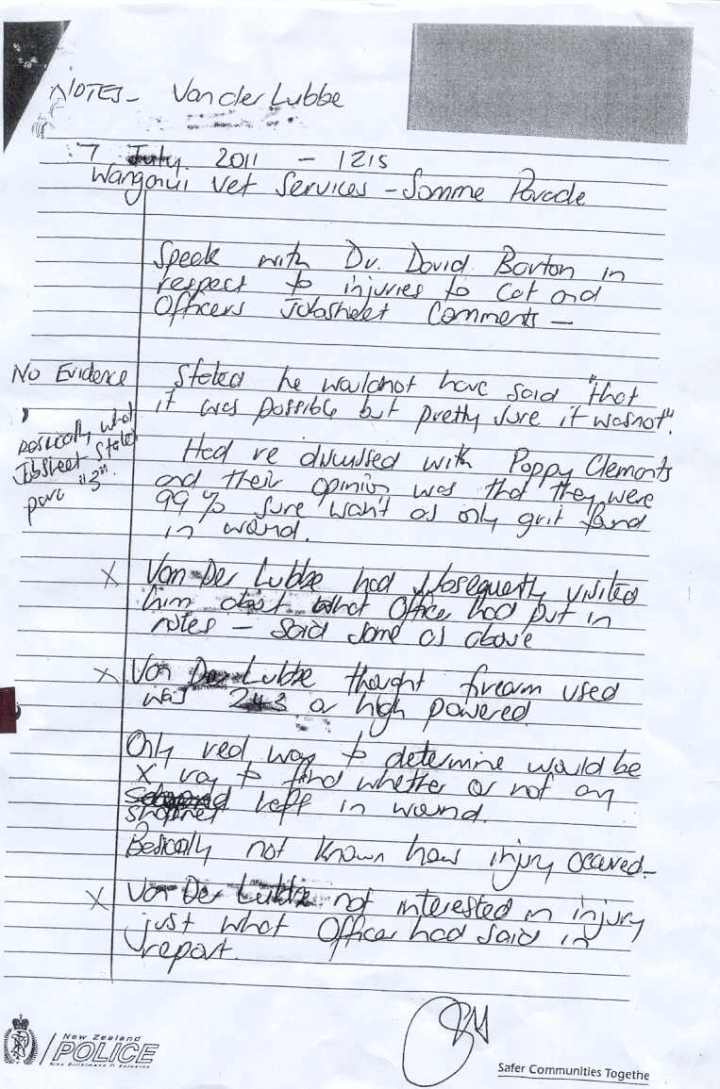 NOTES - Van der Lubbe
7 July 2011 - 1215
Wanganui Vet Services - Somme Parade
Speak with Dr. David Barton in
respect to injuries to Cat and
Officers Jobsheet Comments -
No Evidence
Stated he wouldnot have said "that
it was possible but pretty sure it wasnot".
basically what
Jobsheet states
para "3".
Had re discussed with Poppy Clements
and their opinion was that they were
99% sure wasn't as only grit found
in wound.
X Van Der Lubbe had subsequently visited
him about what Office had put in
notes - Said same as above
X Van Der Lubbe thought firearm used
was 243 or high powered
Only real way to determine would be
X ray to find whether or not any
shrapnel left in wound.
Basically not known how injury occured -
X Van Der Lubbe not interested in injury
just what Officer had said in
report.
New Zealand
POLICE
Safer Communities Togethe